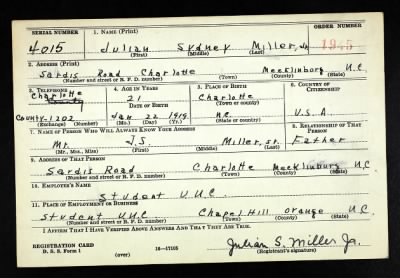 SERIAL NUMBER 1. NAME (Print) ORDER NUMBER
4015 Julian Sydney Miller, Jr. 1945
(First) (Middle) (Last)
2. ADDRESS (Print)
Sardis Road Charlotte Mecklinburg N.C.
(Number and street or R. F. D. number) (Town) (County) (State)
3. TELEPHONE 4. AGE IN YEARS 5. PLACE OF BIRTH 6. COUNTRY OF CITIZENSHIP
Charlotte 21 Charlotte
County DATE OF BIRTH (Town or county)
County-1202 Jan 22 1919 N.C. U.S.A
(Exchange) (Number) (Mo.) (Day) (Yr.) (State or country)
7. NAME OF PERSON WHO WILL ALWAYS KNOW YOUR ADDRESS 8. RELATIONSHIP OF THAT PERSON
Mr. J.S. Miller, Sr. Father
(Mr., Mrs., Miss) (First) (Middle) (Last)
9. ADDRESS OF THAT PERSON
Sardis Road Charlotte Mecklinburg N.C
(Number and street or R. F. D. number) (Town) (County) (State)
10. EMPLOYER'S NAME
Student U.N.C
11. PLACE OF EMPLOYMENT OR BUSINESS
Student U.N.C Chapel Hill Orange N.C
(Number and street or R. F. D. number) (Town) (County) (State)
I AFFIRM THAT I HAVE VERIFIED ABOVE ANSWERS AND THAT THEY ARE TRUE.
REGISTRATION CARD
D. S. S. Form 1 16—17105 Julian S. Miller Jr.
(over) (Registrant's signature)